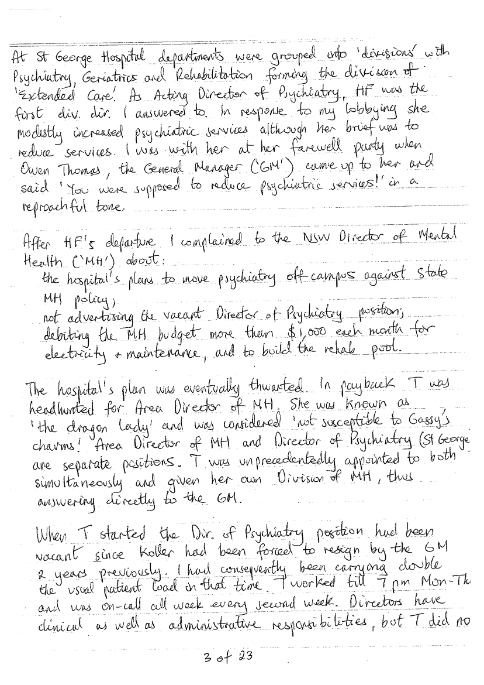 At St George Hospital departments were grouped into 'divisions' with
Psychiatry, Geriatrics and Rehabilitation forming the division of
'Extended Care'. As Acting Director of Psychiatry, HF was the
first div. dir. I answered to. In response to my lobbying she
modestly increased psychiatric services although her brief was to
reduce services. I was with her at her farewell party when
Owen Thomas, the General Manager ('GM') came up to her and
said 'You were supposed to reduce psychiatric services!' in a
reproachful tone.
After HF's departure I complained to the NSW Director of Mental
Health ('MH') about:
the hospital's plans to move psychiatry off campus against State
MH policy;
not advertising the vacant Director of Psychiatry position;
debiting the MH budget more than $1,000 each month for
electricity + maintenance, and to build the rehab pool.
The hospital's plan was eventually thwarted. In payback T was
headhunted for Area Director of MH. She was known as
'the dragon lady' and was considered 'not susceptible to Gassy's
charms'. Area Director of MH and Director of Psychiatry (St George
are separate positions. T was unprecedentedly appointed to both
simultaneously and given her own Division of MH, thus
answering directly to the GM.
When T started the Dir. of Psychiatry position had been
vacant since Koller had been forced to resign by the GM
2 years previously. I had consequently been carrying double
the usual patient load in that time. I worked till 7 pm Mon-Th
and was on-call all week every second week. Directors have
clinical as well as administrative responsibilities, but T did no
3 of 23